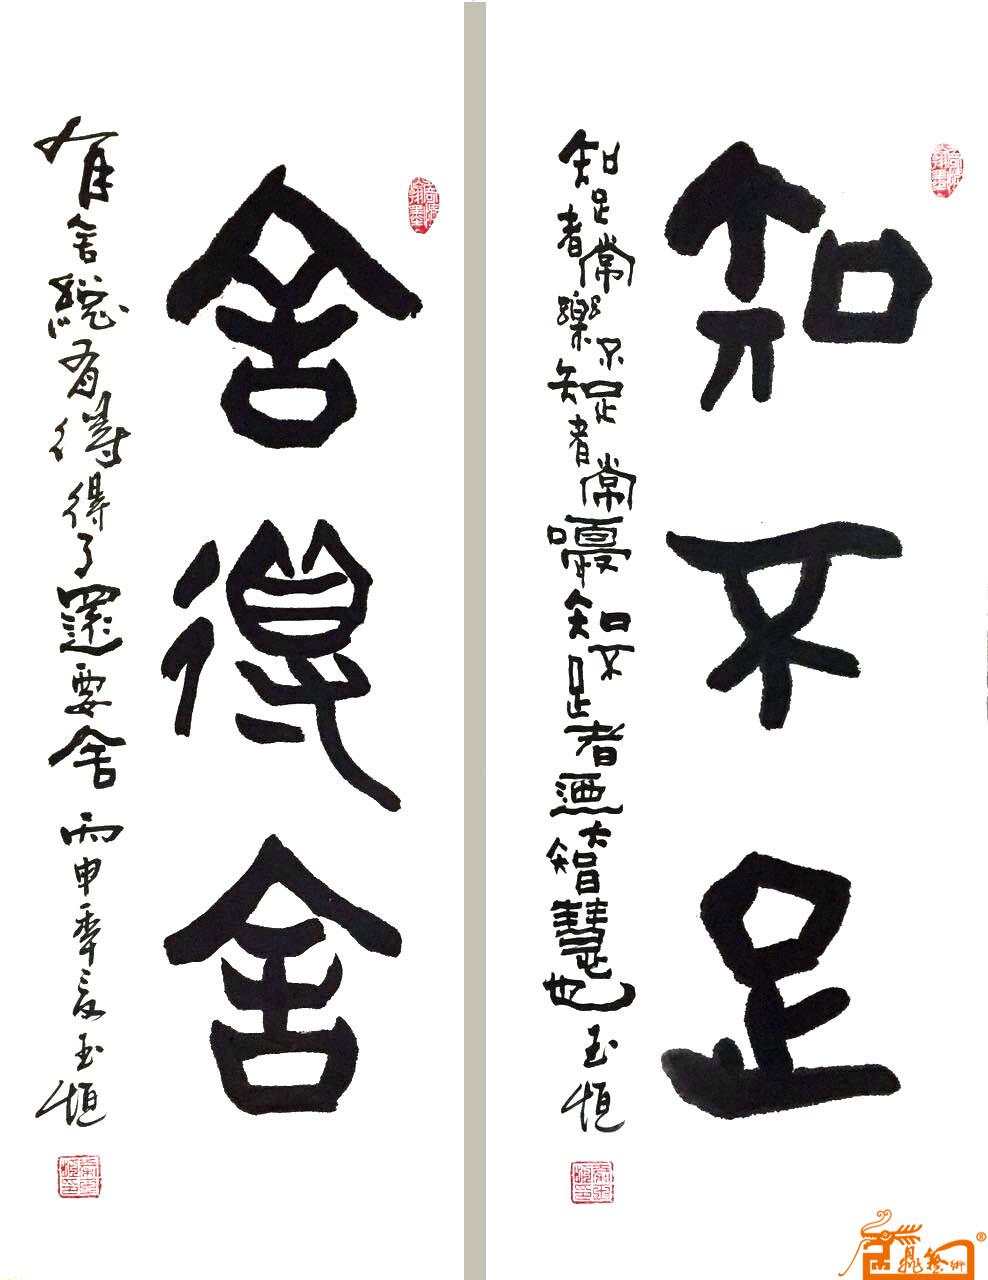 知不足
知足者常樂不知足者常嚘知不足者迺大智慧也 玉恒
舍得舍
有舍總有得得了還要舍 丙申年夏玉恒